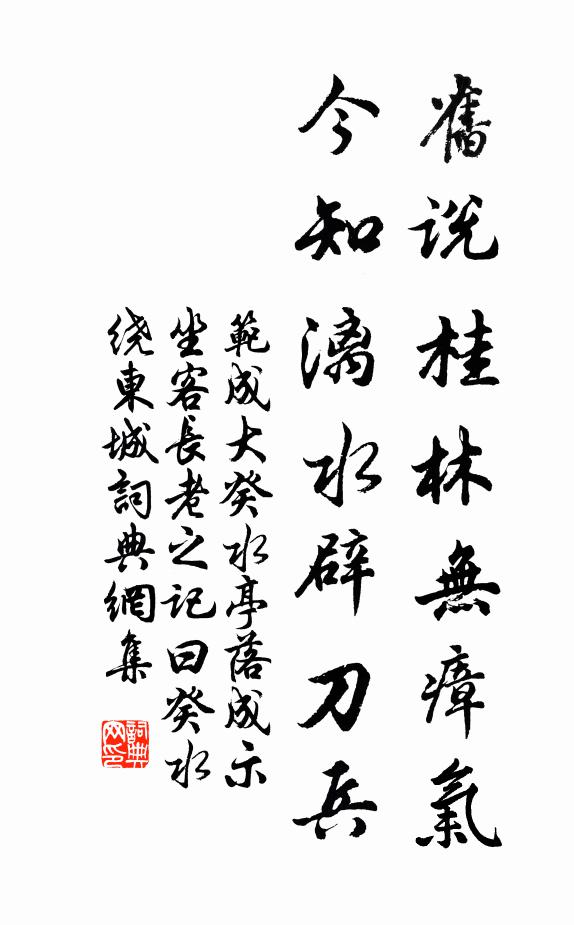 舊説桂林無瘴氣
今知漓水辟刀兵
範成大癸水亭落成示
坐客長老之記曰癸水
绕東城詞典網集
詞典
网印